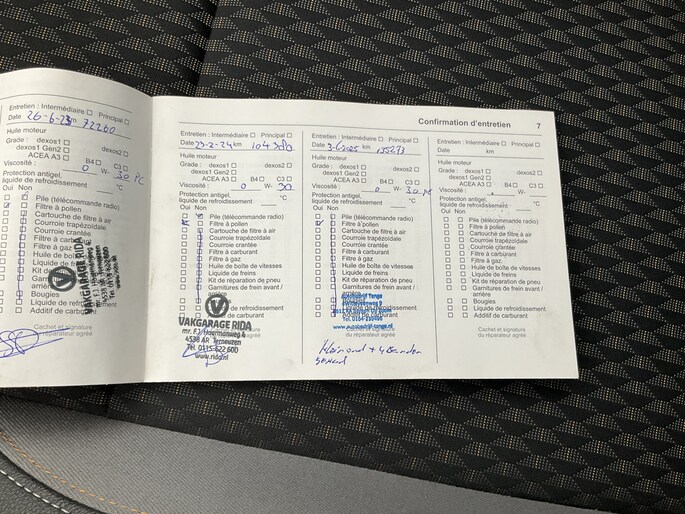 Confirmation d'entretien 7
Entretien : Intermédiaire Principal
Date 26-6-23 km 72260
Huile moteur
Grade : dexos1 dexos2
dexos1 Gen2
ACEA A3 B4 C3
Viscosité : 0 W- 30
Protection antigel,
liquide de refroidissement °C
Oui Non
Pile (télécommande radio)
Filtre à pollen
Cartouche de filtre à air
Courroie trapézoïdale
Courroie crantée
Filtre à
Filtre à gaz
Huile de
Liquide de
Kit de
arrière
Bougies
Liquide de
Additif de
VAKGARAGE RIDA
Cachet et signature
du réparateur agréé
Entretien : Intermédiaire Principal
Date 23-2-24 km
Huile moteur
Grade : dexos1 dexos2
dexos1 Gen2
ACEA A3 B4 C3
Viscosité : 0 W- 30
Protection antigel,
liquide de refroidissement °C
Oui Non
Pile (télécommande radio)
Filtre à pollen
Cartouche de filtre à air
Courroie trapézoïdale
Courroie crantée
Filtre à carburant
Filtre à gaz
Huile de boîte de vitesses
Liquide de freins
Kit de réparation de pneu
Garnitures de frein avant /
arrière
de refroidissement
de carburant
VAKGARAGE RIDA
4538 AR Terneuzen
Tel. 0115-622 600
www.rida.nl
Entretien : Intermédiaire Principal
Date km 135273
Huile moteur
Grade : dexos1 dexos2
dexos1 Gen2
ACEA A3 B4 C3
Viscosité : 0 W- 30
Protection antigel,
liquide de refroidissement °C
Oui Non
Pile (télécommande radio)
Filtre à pollen
Cartouche de filtre à air
Courroie trapézoïdale
Courroie crantée
Filtre à carburant
Filtre à gaz
Huile de boîte de vitesses
Liquide de freins
Kit de réparation de pneu
Garnitures de frein avant /
arrière
de refroidissement
de carburant
Autobedrijf Tange
www.autobedrijf-tange.nl
Cachet et signature
du réparateur agréé
Entretien : Intermédiaire Principal
Date km
Huile moteur
Grade : dexos1 dexos2
dexos1 Gen2
ACEA A3 B4 C3
Viscosité : W-
Protection antigel,
liquide de refroidissement °C
Oui Non
Pile (télécommande radio)
Filtre à pollen
Cartouche de filtre à air
Courroie trapézoïdale
Courroie crantée
Filtre à carburant
Filtre à gaz
Huile de boîte de vitesses
Liquide de freins
Kit de réparation de pneu
Garnitures de frein avant /
arrière
Bougies
Liquide de refroidissement
Additif de carburant
Cachet et signature
du réparateur agréé